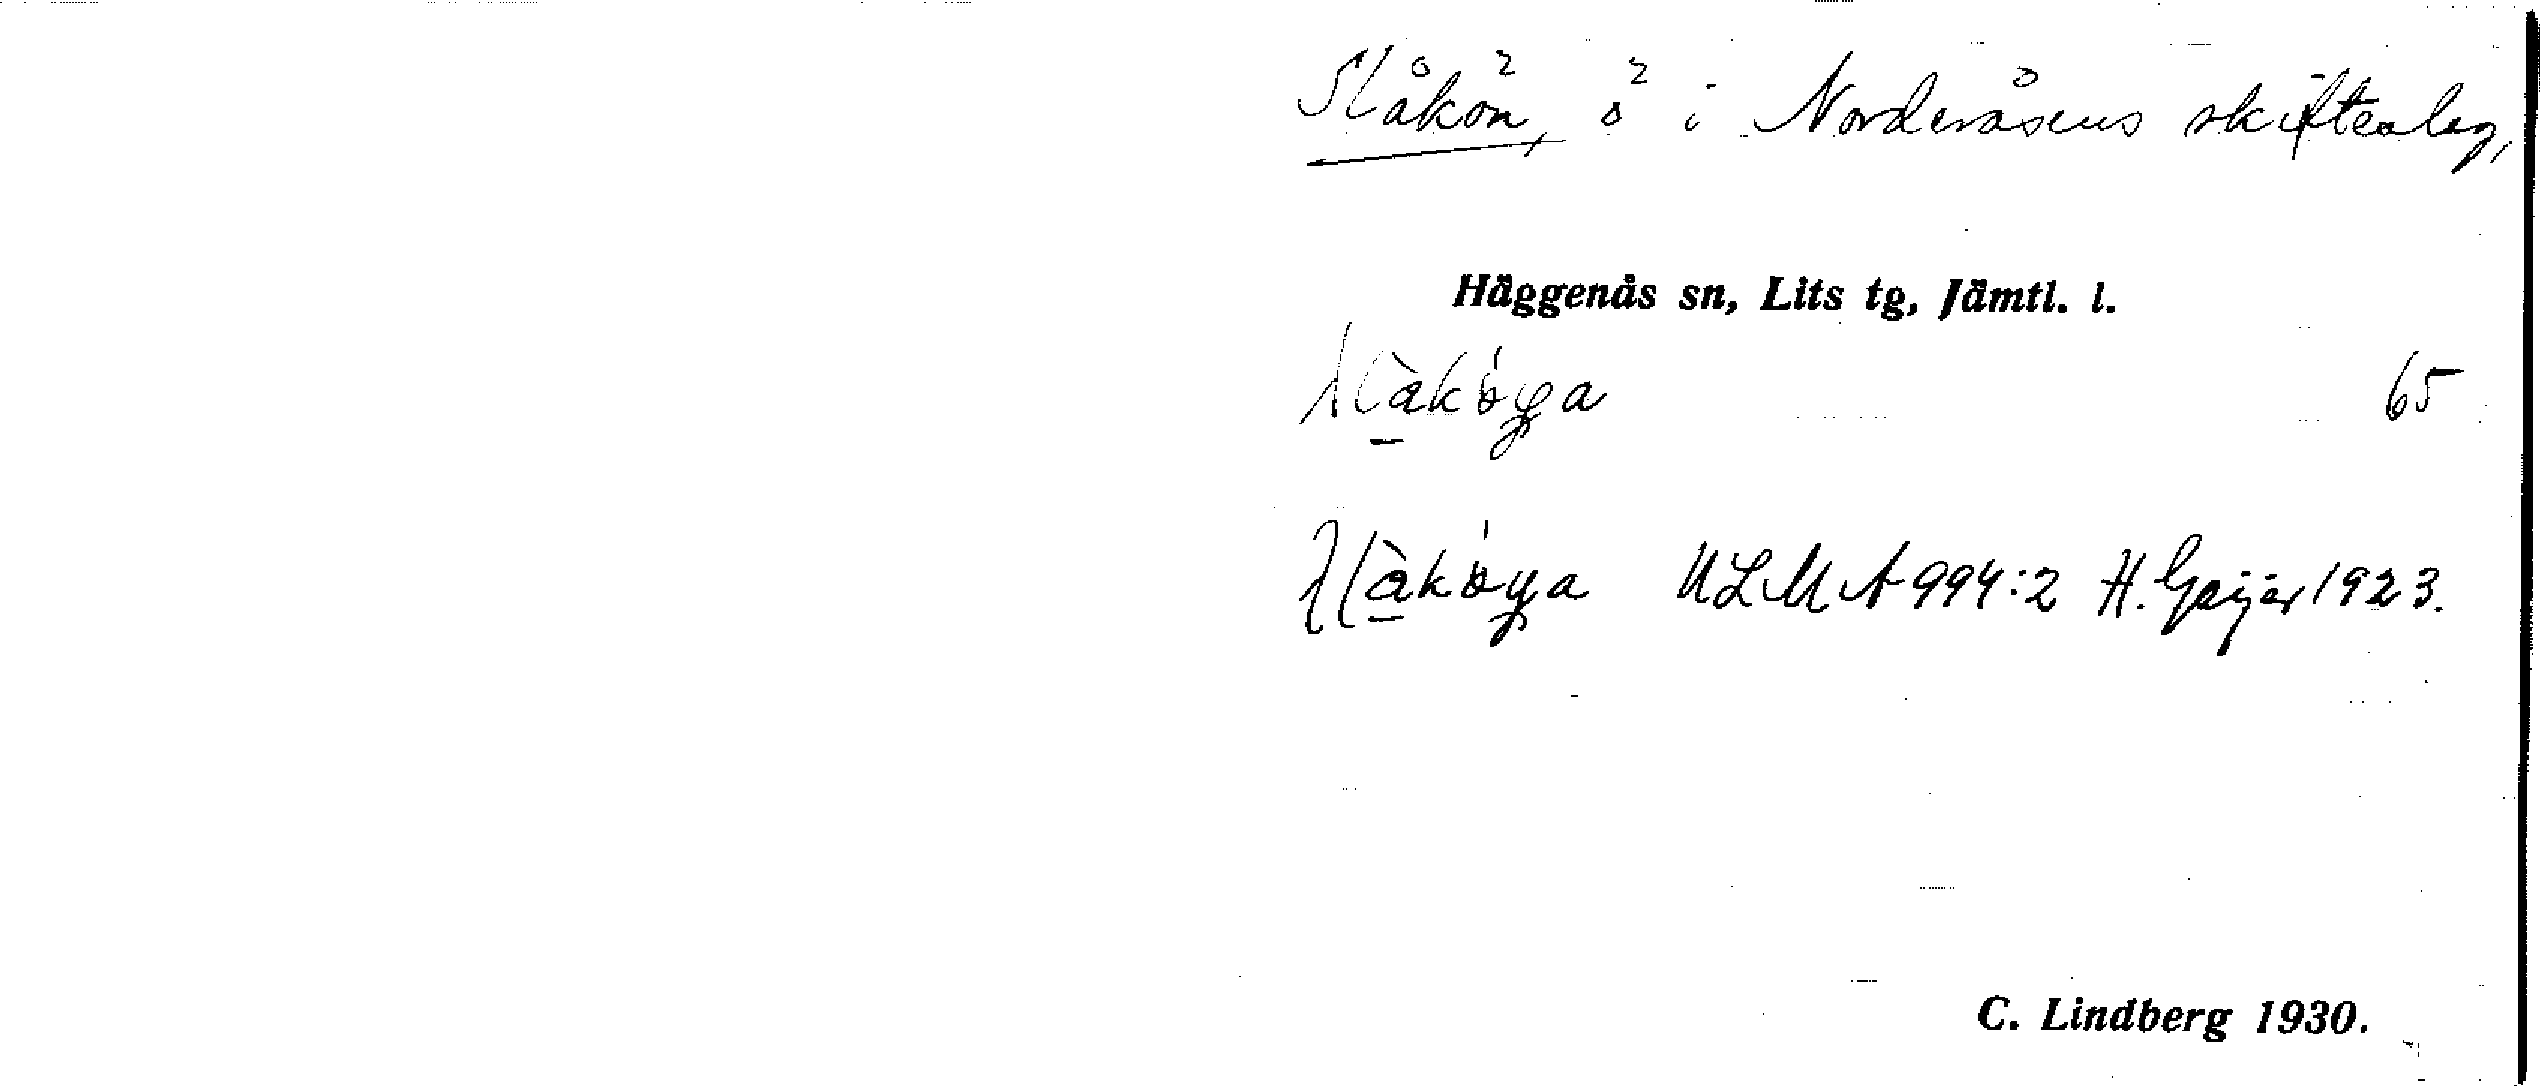 Slåkön, ö i Norderåsens skifteslag,
Häggenås sn, Lits tg, Jämtl. l.
slàkø̀ya 65
slàkø̀ya ULMA 994:2 H. Geijer 1923.
C. Lindberg 1930.